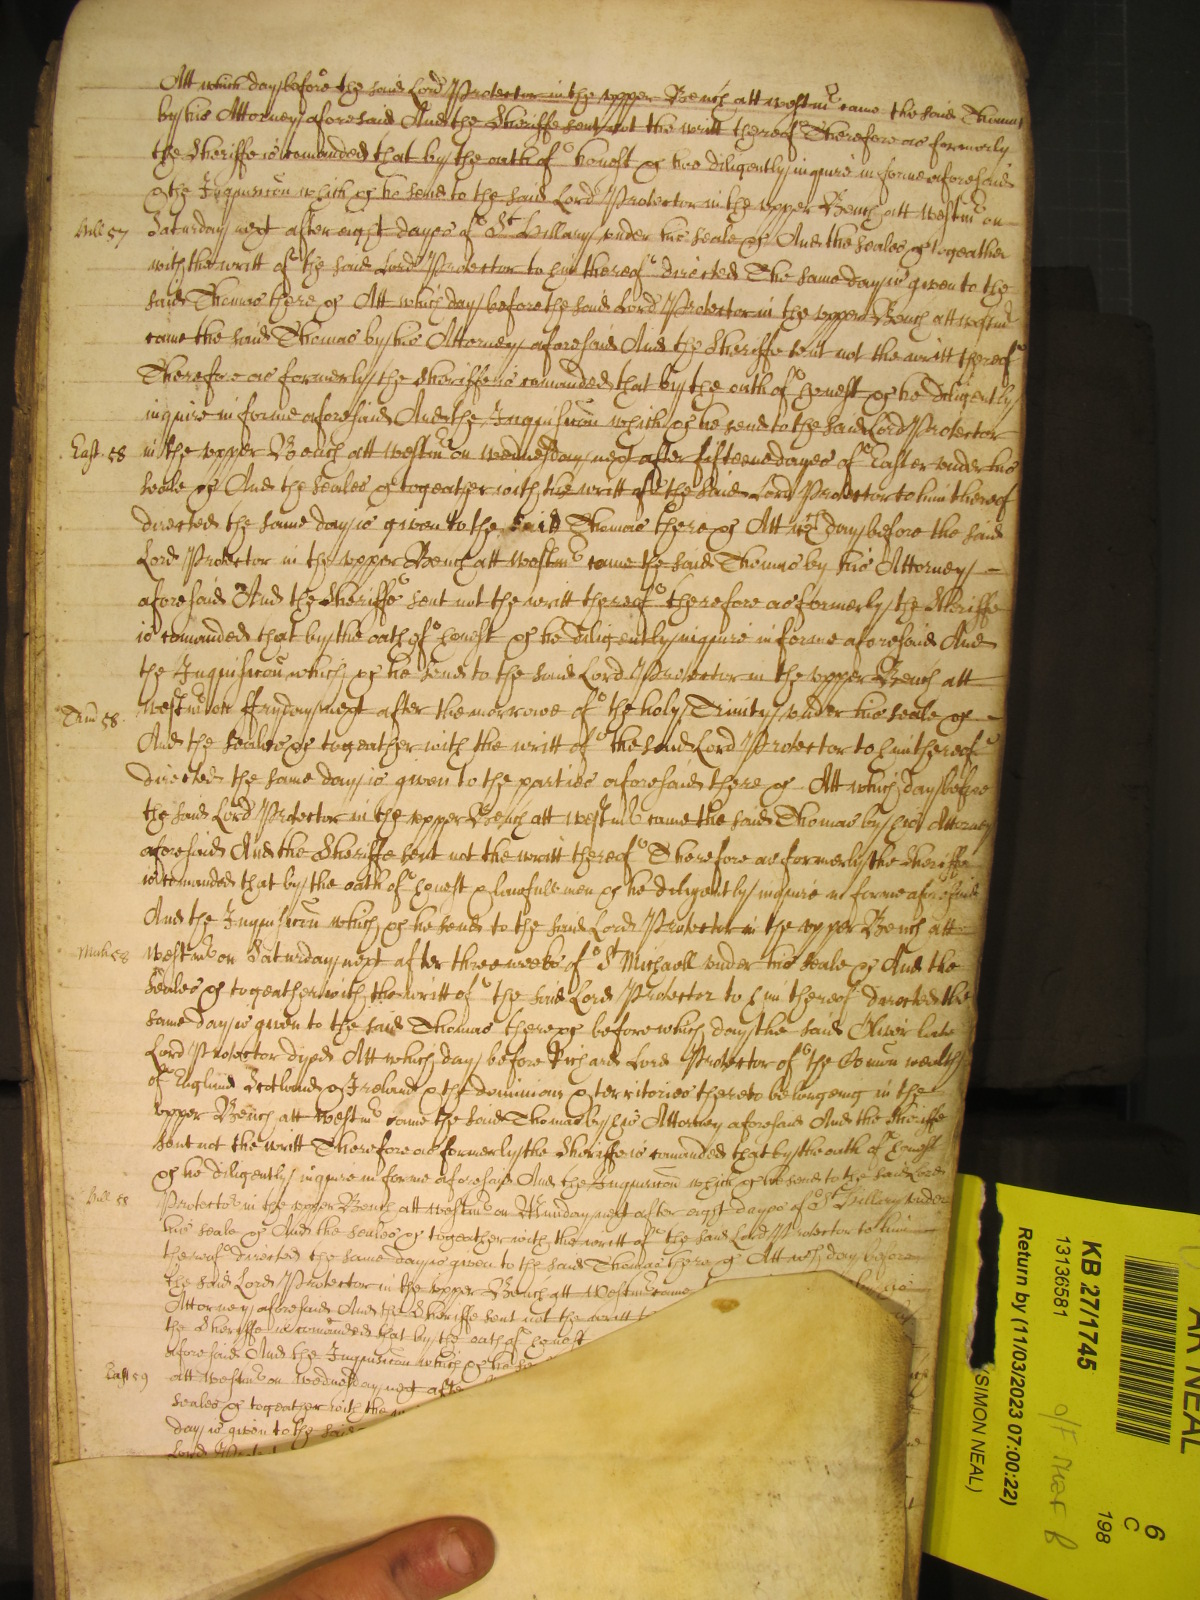 Att which day before the said Lord Protector in the upper Bench att westmr came the said Thomas
by his Attorney aforesaid And the Sheriffe sent not the writt thereof Therefore as formerly
the Sheriffe is comanded that by the oath of honest &c hee diligently inquire in forme aforesaid
& the Inquisicon which &c he send to the said Lord Protector in the upper Bench att westmr on
Hill 57
Saturday next after eight dayes of St Hillary under his seale &c And the seales &c togeather
with the writt of the said Lord Protector to him thereof directed The same day is given to the
said Thomas there &c Att which day before the said Lord Protector in the upper Bench att westmr
came the said Thomas by his Attorney aforesaid And the Sheriffe sent not the writt thereof
Therefore as formerly the Sheriffe is comanded that by the oath of honest &c he diligently
inquire in forme aforesaid And the Inquisicon which &c he send to the said Lord Protector
East 58
in the upper Bench att westmr on wednesday next after fifteene dayes of Easter under his
seale &c And the seales &c togeather with the writt of the said Lord Protector to him thereof
directed the same day is given to the said Thomas there &c Att wch day before the said
Lord Protector in the upper Bench att westmr came the said Thomas by his Attorney
aforesaid And the Sheriffe sent not the writt thereof therefore as formerly the Sheriffe
is comanded that by the oath of honest &c he diligently inquire in forme aforesaid And
the Inquisicon which &c he send to the said Lord Protector in the upper Bench att
Trin 58
westmr on ffryday next after the morrowe of the holy Trinity under his seale &c
And the seales &c togeather with the writt of the said Lord Protector to him thereof
directed the same day is given to the parties aforesaid there &c Att which day before
the said Lord Protector in the upper Bench att westmr came the said Thomas by his Attorney
aforesaid And the Sheriffe sent not the writt thereof Therefore as formerly the Sheriffe
is comanded that by the oath of honest & lawfull men &c he diligently inquire in forme aforesaid
And the Inquisicon which &c he send to the said Lord Protector in the upper Bench att
Mich 58
westmr on Saturday next after three weeks of St Michaell under his seale &c And the
seales &c togeather with the writt of the said Lord Protector to him thereof directed the
same day is given to the said Thomas there &c before which day the said Oliver late
Lord Protector dyed Att which day before Richard Lord Protector of the Comon wealth
of England Scotland & Ireland & the dominions & territories thereto belonging in the
upper Bench att westmr came the said Thomas by his Attorney aforesaid And the Sheriffe
sent not the writt Therefore as formerly the Sheriffe is comanded that by the oath of honest
&c he diligently inquire in forme aforesaid And the Inquisicon which &c he send to the said Lord
Hill 58
Protector in the upper Bench att westmr on Munday next after eight dayes of St Hillary under
his seale &c And the seales &c togeather with the writt of the said Lord Protector to him
thereof directed the same day is given to the said Thomas there &c Att wch day before
the said Lord Protector in the upper Bench att Westmr came
Attorney aforesaid And the Sheriffe sent not the writt
the Sheriffe is comanded that by the oath of honest
aforesaid And the Inquisicon which &c he se
East 59
att westmr on wednesday next afte
seales &c togeather with the
day is given to the said
6
C
198
KB 27/1745
13136581
Return by (11/03/2023 07:00:22)
(SIMON NEAL)
AR NEAL